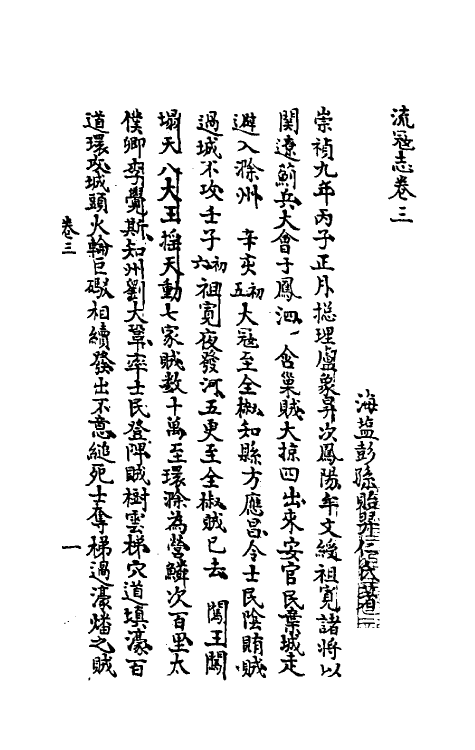 流寇志卷三
海盐彭孫貽羿仁氏著
崇禎九年丙子正月揔理盧象昇次鳳陽年文綬祖寛諸將以
関遼薊兵大會于鳳泗、含巢賊大掠四出來安官民棄城走
避入滁州 辛亥初五大寇至全椒知縣方應昌令士民陰賄賊
過城不攻壬子初六祖寛夜發河五更至全椒賊已去 闖王闖
塌天八大王揺天動七家賊数十萬至環滁為營鱗次百里太
僕卿李覺斯知州劉大鞏率士民登陴賊樹雲梯穴道填濠百
道環攻城頭火輪巨砲相續發出不意縋死士奪梯過濠燔之賊
卷三
一